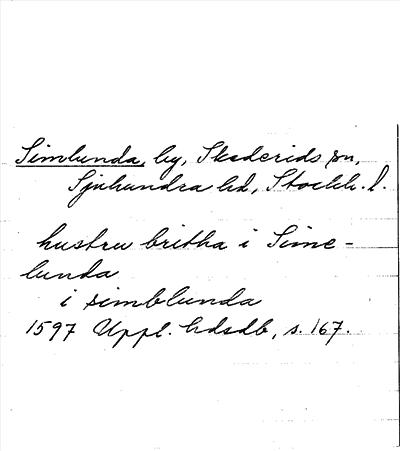 Simlunda, by, Skederids sn,
Sjuhundra hd, Stockh. l.
hustru britha i Sime-
lunda
i simblunda
1597 Uppl. hdsdb, s. 167.